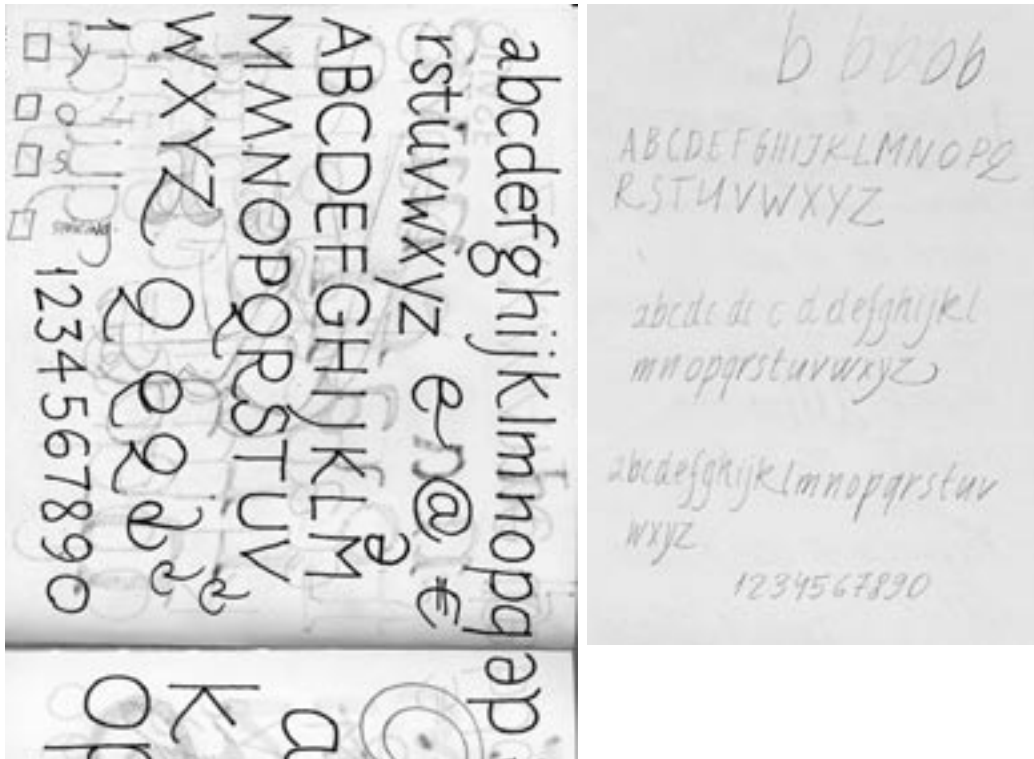 abcdefghijklmnopq
rstuvwxyz e n @ €
ABCDEFGHIJKLM
MMNOPQRSTUV
WXYZ Q Q Q
1234567890
y
o
s
spacing
a
K
op
b b b b b
ABCDEFGHIJKLMNOPQ
RSTUVWXYZ
abcde de c d defghijkl
mnopqrstuvwxyz
abcdefghijklmnopqrstuv
wxyz
1234567890